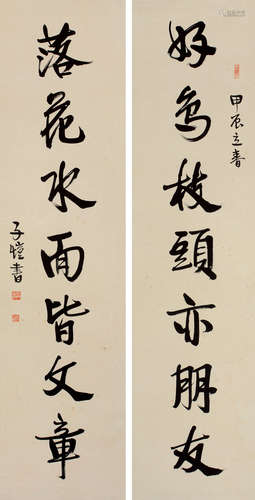 甲辰立春
好鸟枝頭亦朋友
落花水面皆文章
子愷書